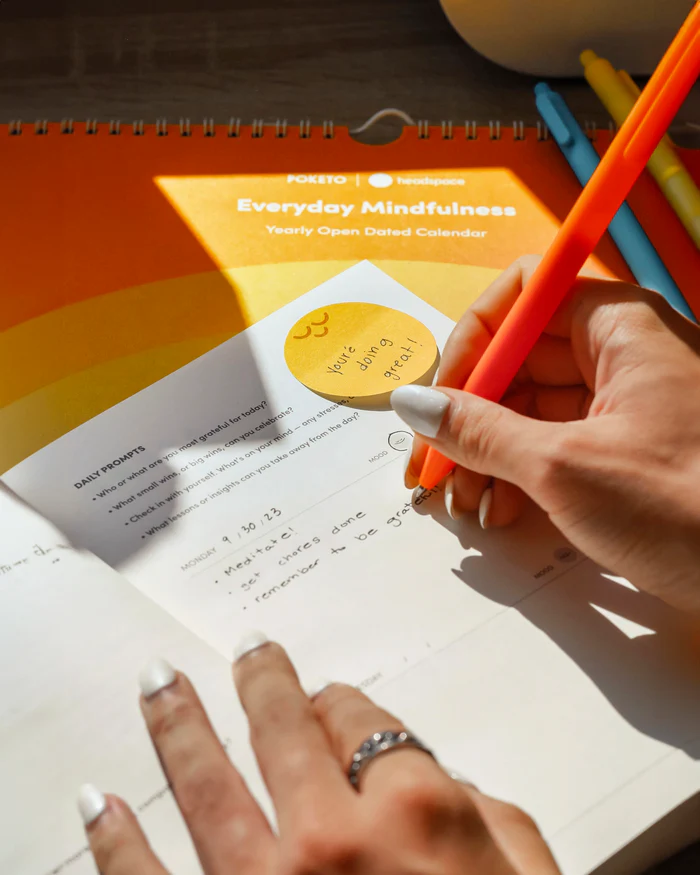 POKETO | headspace
Everyday Mindfulness
Yearly Open Dated Calendar
you're
doing
great!
DAILY PROMPTS
• Who or what are you most grateful for today?
• What small wins, or big wins, can you celebrate?
• Check in with yourself. What's on your mind — any stresses,
• What lessons or insights can you take away from the day?
MOOD
MONDAY 9/30/23
• Meditate!
• get chores done
• remember to be grateful!
MOOD